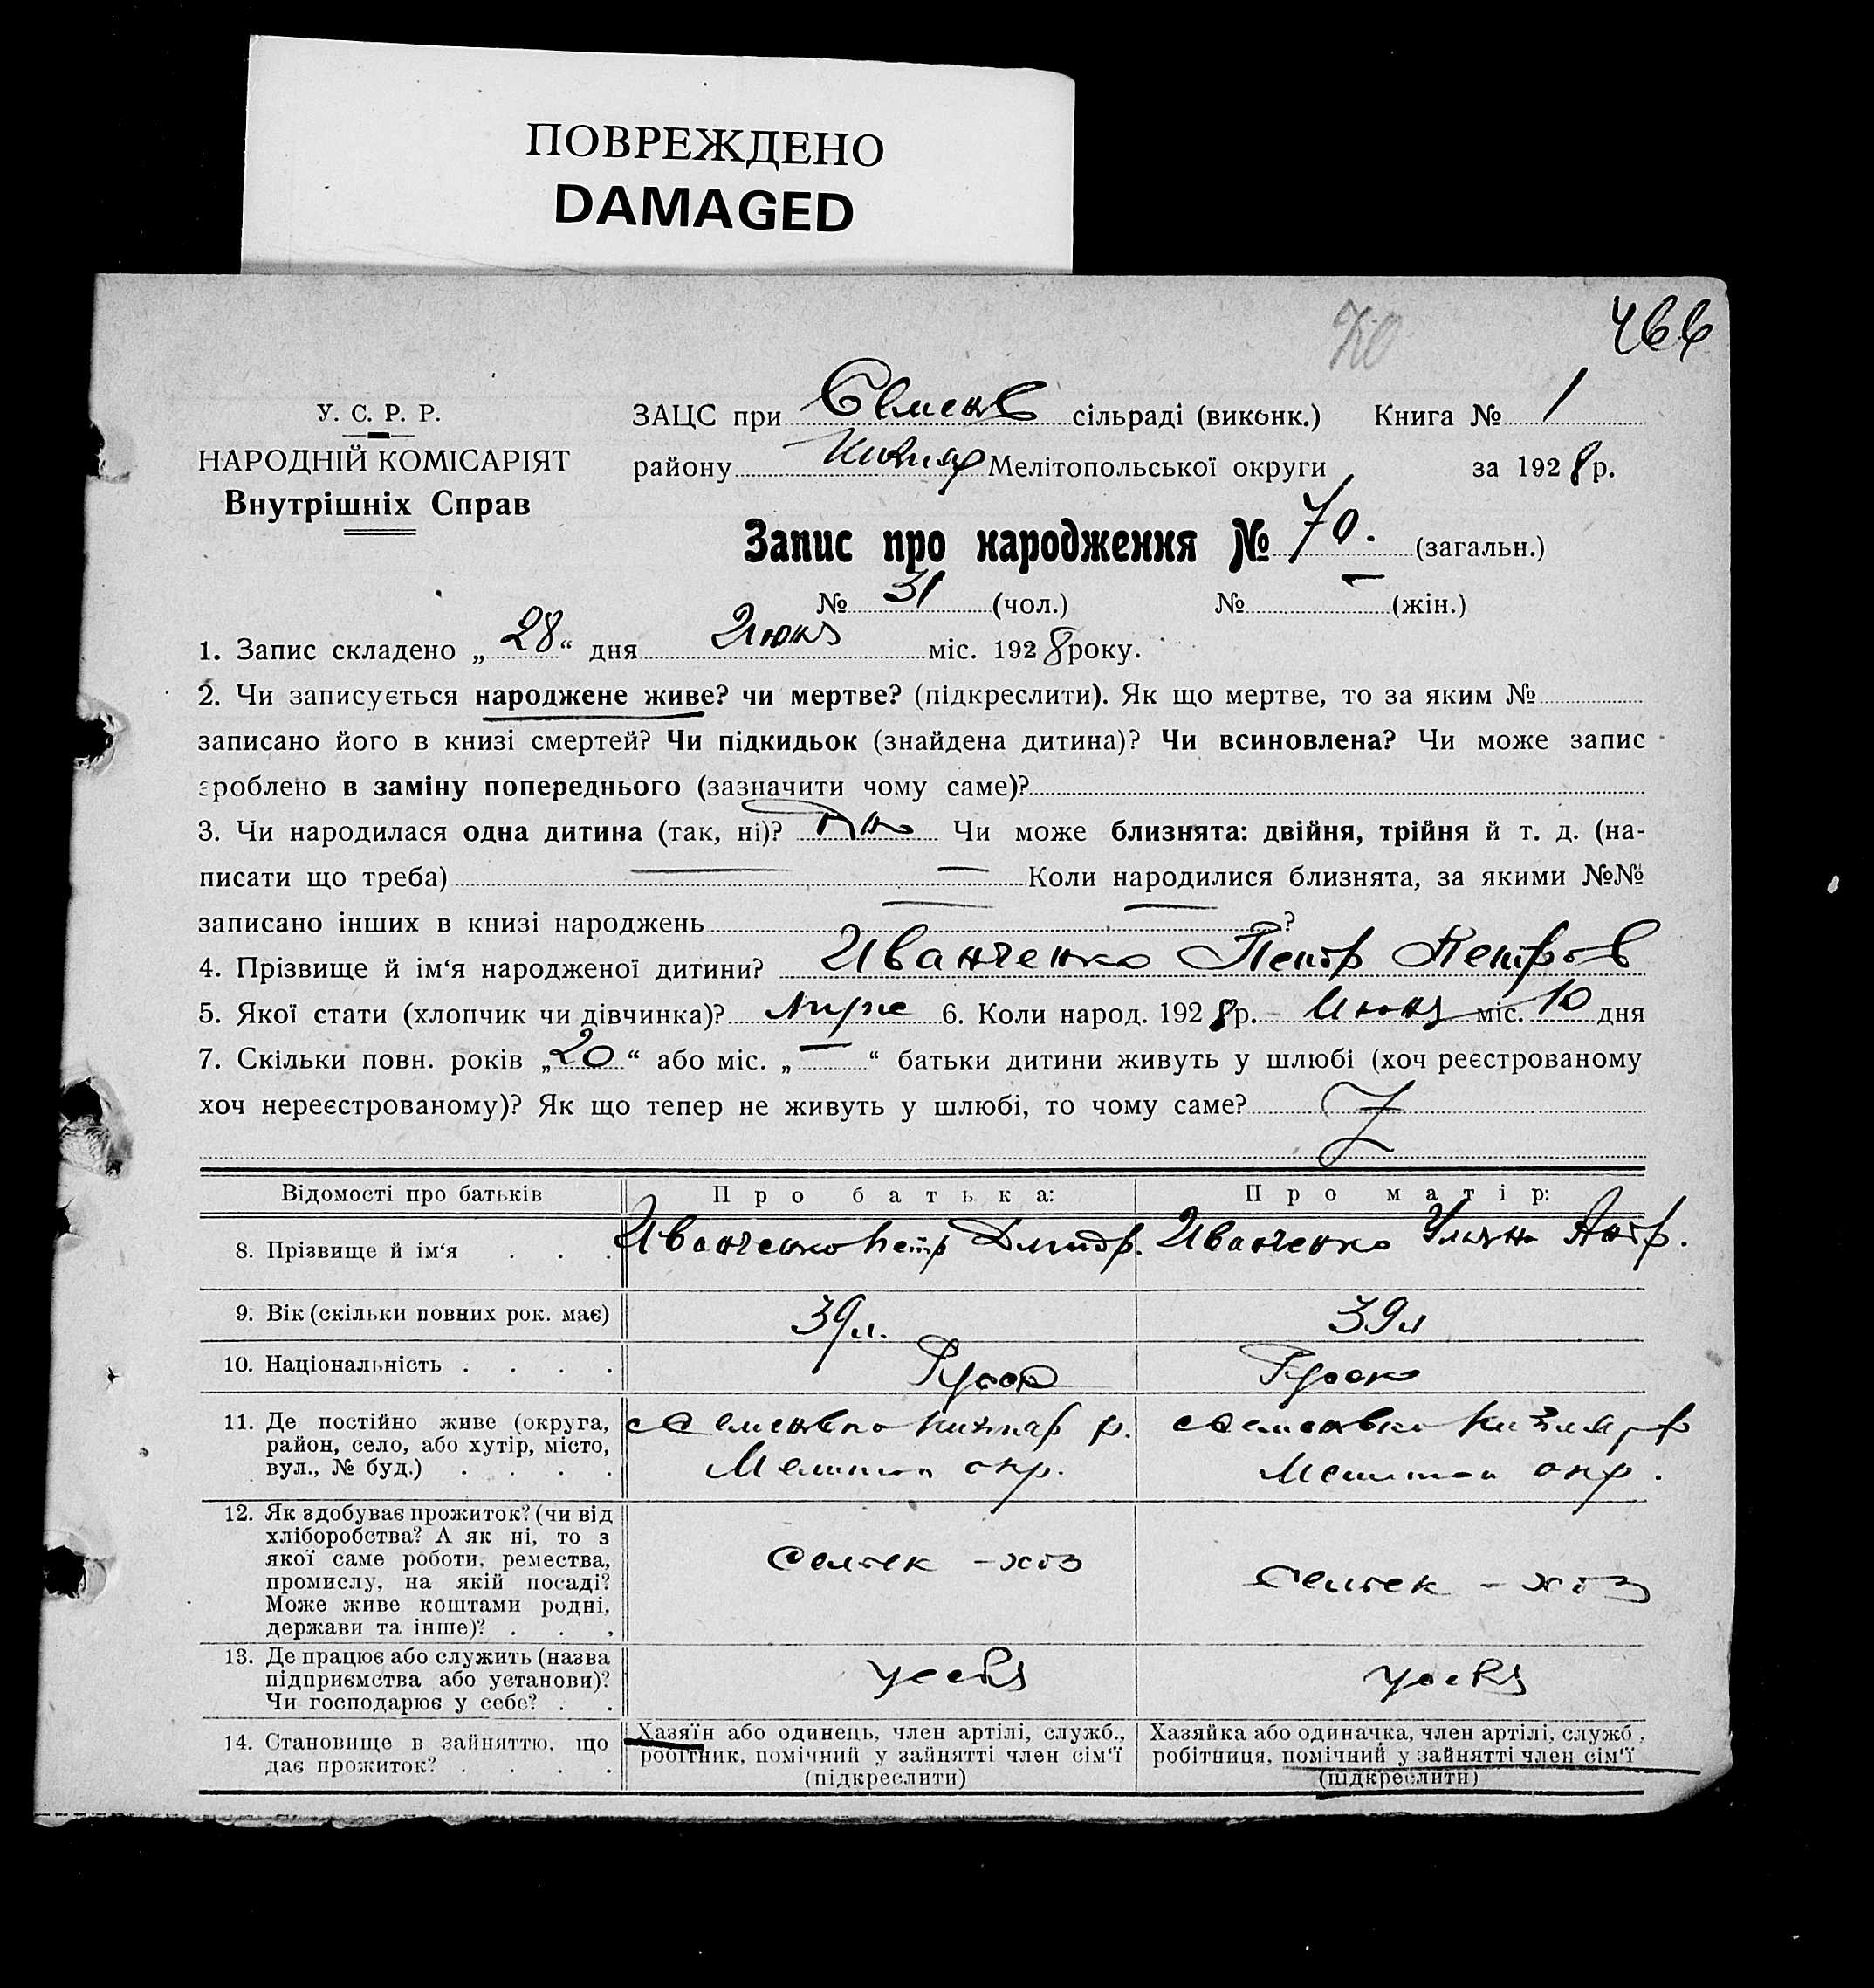 ПОВРЕЖДЕНО
DAMAGED
70
466
У. С. Р. Р.
НАРОДНІЙ КОМІСАРІЯТ
Внутрішніх Справ
ЗАЦС при Семенов сільраді (виконк.) Книга № 1
району Кизияр Мелітопольської округи за 1928 р.
Запис про народження № 70. (загальн.)
№ 31 (чол.) № — (жін.)
1. Запис складено „28“ дня Июня міс. 1928 року.
2. Чи записується народжене живе? чи мертве? (підкреслити). Як що мертве, то за яким №
записано його в книзі смертей? Чи підкидьок (знайдена дитина)? Чи всиновлена? Чи може запис
зроблено в заміну попереднього (зазначити чому саме)?
3. Чи народилася одна дитина (так, ні)? Чи може близнята: двійня, трійня й т. д. (на-
писати що треба) — — Коли народилися близнята, за якими №№
записано інших в книзі народжень — — ?
4. Прізвище й ім‘я народженої дитини? Иванченко Петр Петров
5. Якої стати (хлопчик чи дівчинка)? муж 6. Коли народ. 1928 р. Июня міс. 10 дня
7. Скільки повн. років „20“ або міс. „—“ батьки дитини живуть у шлюбі (хоч реєстрованому
хоч нереєстрованому)? Як що тепер не живуть у шлюбі, то чому саме?
Відомості про батьків Про батька: Про матір:
8. Прізвище й ім‘я . . . Иванченко Петр Дмитр. Иванченко Ульяна Антр.
9. Вік (скільки повних рок. має) 39 л. 39 л
10. Національність . . . . Русск Русск
11. Де постійно живе (округа,
район, село, або хутір, місто,
вул., № буд.) . . . .
с Семеновка Кизияр р.
Мелитоп окр.
с Семеновка Кизияр р
Мелитоп окр.
12. Як здобуває прожиток? (чи від
хліборобства? А як ні, то з
якої саме роботи, ремества,
промислу, на якій посаді?
Може живе коштами родні,
держави та інше)? . . .
Сельск - хоз
Сельск - хоз
13. Де працює або служить (назва
підприємства або установи)?
Чи господарює у себе? . .
у себя
у себя
14. Становище в зайняттю, що
дає прожиток? . . . .
Хазяїн або одинець, член артілі, служб.,
робітник, помічний у зайнятті член сім‘ї
(підкреслити)
Хазяйка або одиначка, член артілі, служб.,
робітниця, помічний у зайнятті член сім‘ї
(підкреслити)